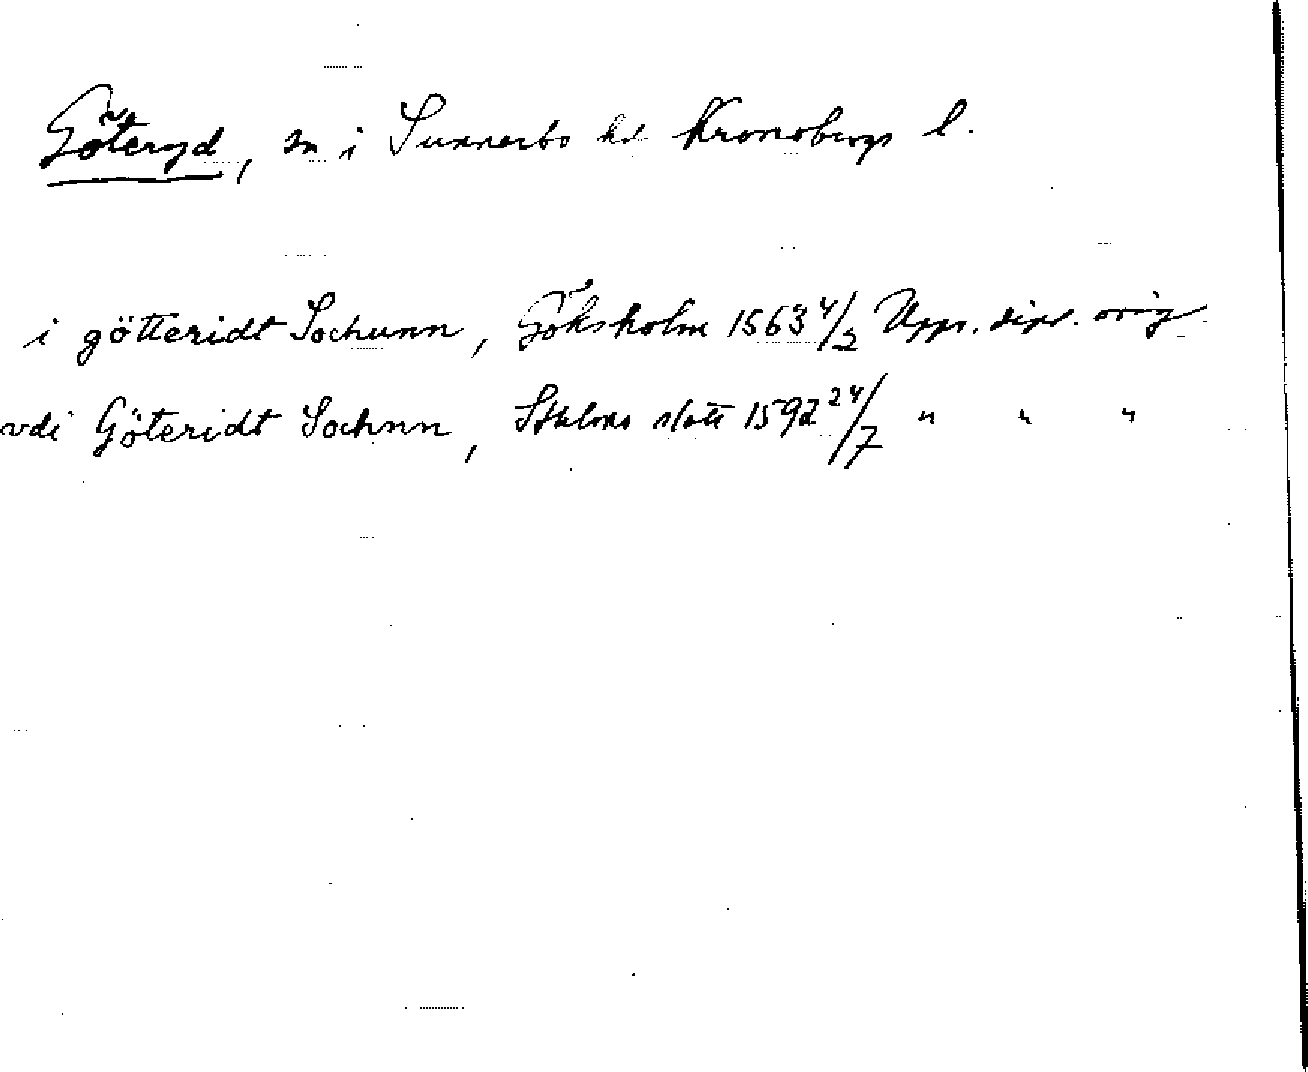 Göteryd, sn i Sunnerbo hd Kronobergs l.
i götteridt Sochunn, Göksholm 1563 4/2 Upps. dipl. orig
vdi Göteridt Sochnn, Sthlms slott 1592 24/7 " " "